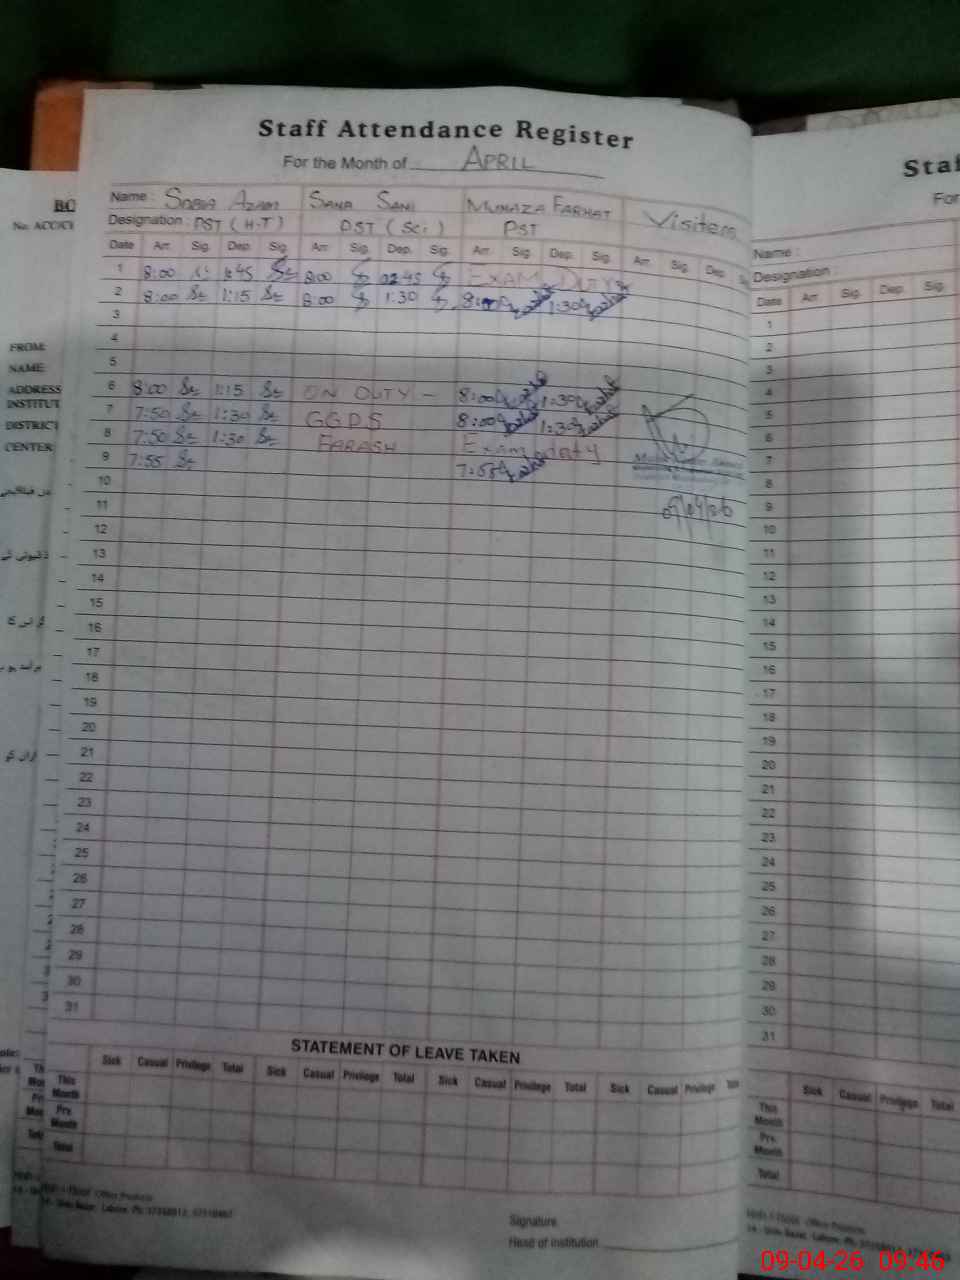 Staff Attendance Register
For the Month of APRIL
Name : SOBIA AZAM SANA SANI MUMAZA FARHAT Visiters
Designation : PST (H-T) DST (Sci) PST
Date Arr. Sig. Dep. Sig. Arr. Sig. Dep. Sig. Arr. Sig. Dep. Sig. Arr. Sig. Dep.
1 8:00 1:45 8:00 02:45 EXAM DUTY
2 8:00 1:15 8:00 1:30 8:00 1:30
3
4
5
6 8:00 1:15 ON DUTY - 8:00 1:30
7 7:50 1:30 GGPS 8:00 1:30
8 7:50 1:30 FARASH Exam duty
9 7:55 7:55
10
11
12
13
14
15
16
17
18
19
20
21
22
23
24
25
26
27
28
29
30
31
STATEMENT OF LEAVE TAKEN
Sick Casual Privilege Total Sick Casual Privilege Total Sick Casual Privilege Total Sick Casual Privilege
This Month
Prv. Month
Total
Signature
Head of Institution
Staf
For
Name :
Designation :
Date Arr. Sig. Dep. Sig.
1
2
3
4
5
6
7
8
9
10
11
12
13
14
15
16
17
18
19
20
21
22
23
24
25
26
27
28
29
30
31
Sick Casual Privilege Total
This Month
Prv. Month
Total
No. ACC/CE
FROM:
NAME
ADDRESS
INSTITUT
DISTRICT
CENTER
09-04-26 09:46